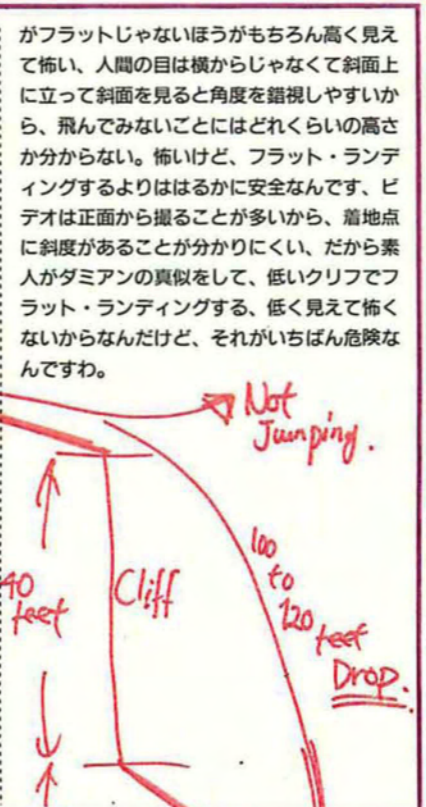 がフラットじゃないほうがもちろん高く見え
て怖い、人間の目は横からじゃなくて斜面上
に立って斜面を見ると角度を錯視しやすいか
ら、飛んでみないごとにはどれくらいの高さ
か分からない。怖いけど、フラット・ランデ
ィングするよりははるかに安全なんです、ビ
デオは正面から撮ることが多いから、着地点
に斜度があることが分かりにくい、だから素
人がダミアンの真似をして、低いクリフでフ
ラット・ランディングする、低く見えて怖く
ないからなんだけど、それがいちばん危険な
んですわ。
Not
Jumping.
40
feet
Cliff
100
to
120
feet
Drop.